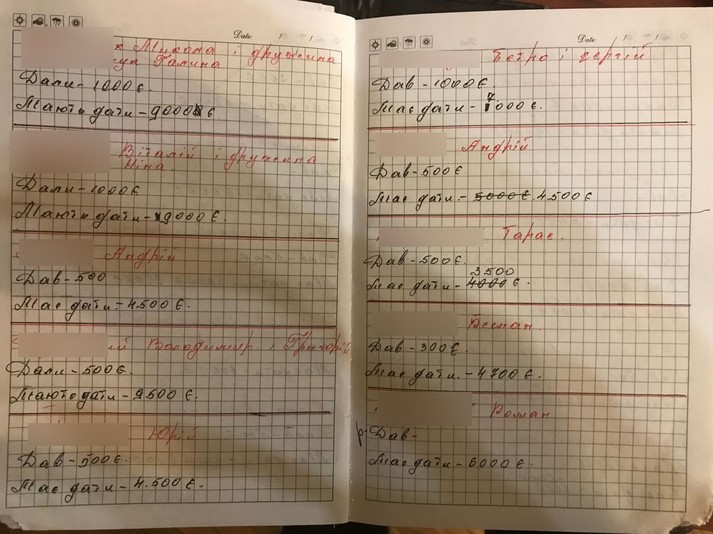 Date:
Микола і дружина
Галина
Дали - 1000 €.
Мають дати - 9000 €
Віталій і дружина
Ніна
Дали - 1000 €
Мають дати - 9000 €.
Андрій
Дав - 500
Має дати - 4.500 €
ій Володимир і Григорій
Дали - 500 €.
Мають дати - 9.500 €.
Юрій
Дав - 500 €.
Має дати - 4.500 €.
Date:
Петро і Сергій
Дав - 1000 €
Має дати - 7000 €.
Андрій
Дав - 500 €
Має дати - 5000 € 4.500 €
Тарас.
Дав - 500 €.
3500
Має дати - 4000 €.
Дав - 300 €.
Має дати - 4700 €.
Роман
Дав -
Має дати - 6000 €.